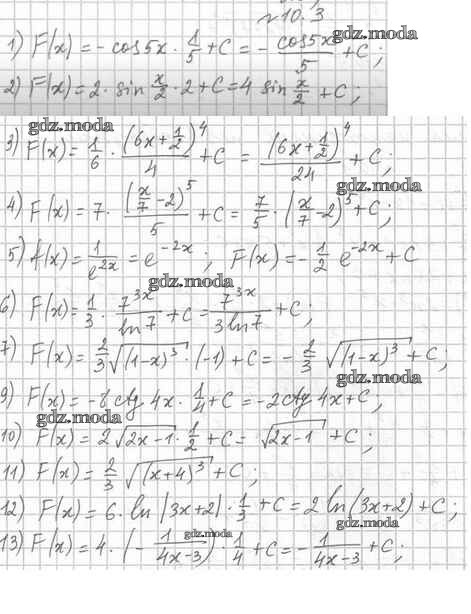 №10.3
1) F(x) = -cos5x · 1/5 + C = - cos5x/5 + C ;
2) F(x) = 2 · sin x/2 · 2 + C = 4 sin x/2 + C ;
gdz.moda
3) F(x) = 1/6 · (6x + 1/2)^4/4 + C = (6x + 1/2)^4/24 + C ;
gdz.moda
4) F(x) = 7 · (x/7 - 2)^5/5 + C = 7/5 · (x/7 - 2)^5 + C ;
5) f(x) = 1/e^2x = e^-2x ; F(x) = - 1/2 e^-2x + C
gdz.moda
6) F(x) = 1/3 · 7^3x/ln7 + C = 7^3x/3ln7 + C ;
7) F(x) = 2/3 √(1-x)^3 · (-1) + C = - 2/3 √(1-x)^3 + C ;
gdz.moda
9) F(x) = -8 ctg 4x · 1/4 + C = -2 ctg 4x + C ;
gdz.moda
10) F(x) = 2 √2x-1 · 1/2 + C = √2x-1 + C ;
11) F(x) = 2/3 √(x+4)^3 + C ;
gdz.moda
12) F(x) = 6 · ln |3x+2| · 1/3 + C = 2 ln (3x+2) + C ;
gdz.moda
gdz.moda
13) F(x) = 4 · (- 1/4x-3) · 1/4 + C = - 1/4x-3 + C ;